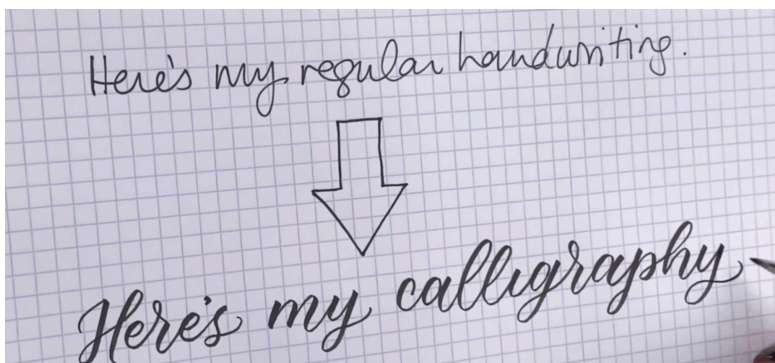 Here's my regular handwriting.
Here's my calligraphy